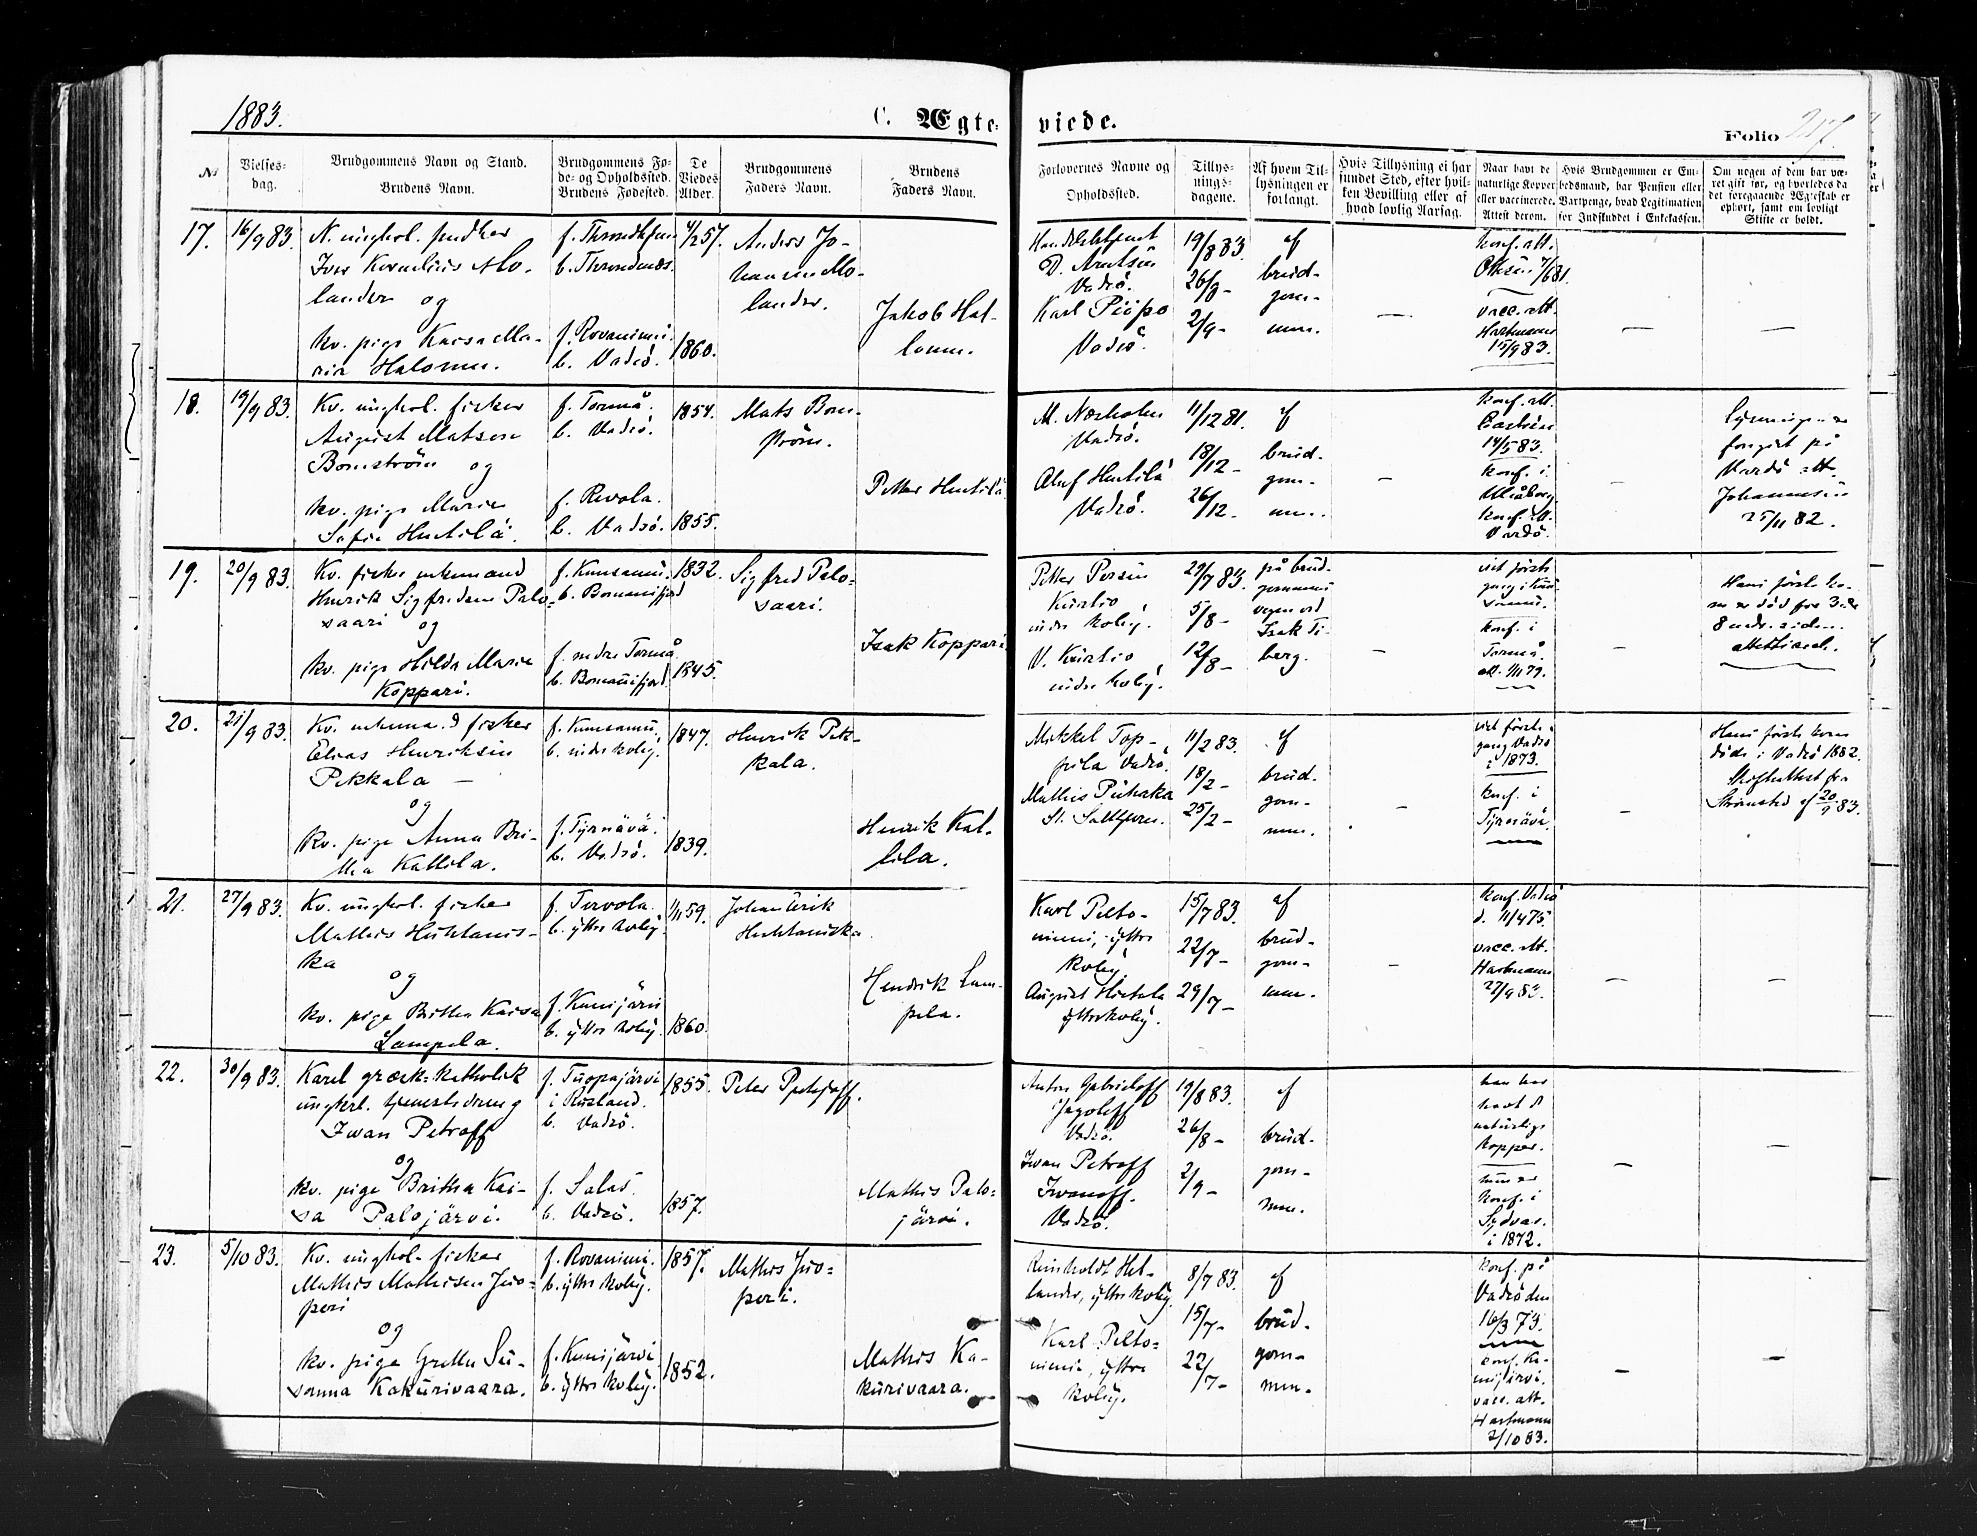 1883.
C. Ægte-
viede.
Folio
№
Vielses-
dag.
Brudgommens Navn og Stand.
Brudens Navn.
Brudgommens Fø-
de- og Opholdssted.
Brudens Fødested.
De
Viedes
Alder.
Brudgommens
Faders Navn.
Brudens
Faders Navn.
Forlovernes Navne og
Opholdssted.
Tillys-
nings-
dagene.
Af hvem Til-
lysningen er
forlangt.
Hvis Tillysning ei har
fundet Sted, efter hvil-
ken Bevilling eller af
hvad lovlig Aarsag.
Naar havt de
naturlige Kopper
eller vaccinerede.
Attest derom.
Hvis Brudgommen er Em-
bedsmand, har Pension eller
Vartpenge, hvad Legitimation
for Indskuddet i Enkekassen.
Om nogen af dem har væ-
ret gift før, og hvorledes da
det foregaaende Ægteskab er
ophørt, samt om lovligt
Skifte er holdt.
17.
16/9 83.
N. ungkol.
Iver Kornelius Mo-
lander og
kv. pige Kaisa Ma-
ria Halonen.
b. Throndenæs.
f. Rovaniemi.
b. Vadsö.
4/2 57.
1860.
Anders Jo-
hannsen Mo-
lander.
Jakob Hal-
lonen.
D. Arntsen
Vadsö.
Karl Piipo
Vadsö.
19/8 83.
26/8 -
2/9 -
af
brud-
gom-
men.
—
konf. att.
vacc. att.
Hartmann
15/9 83.
—
—
18.
19/9 83.
Kv. ungkol. fisker
August Matsen
Bomström og
kv. pige Marie
Sofie Huttilä.
f. Tornå.
b. Vadsö.
f. Revola.
b. Vadsö.
1854.
1855.
Mats Bom-
ström.
Petter Huttilä
M. Næsholen
Vadsö.
Oluf Huttilä
Vadsö.
11/12 81.
18/12 -
26/12 -
af
brud-
gom-
men.
—
konf. att.
14/5 83.
konf. i
Uleåborg
konf. att.
Vardö.
—
forgået på
Vardö att.
Johannesen
25/11 82.
19.
20/9 83.
Kv. fisker enkemand
Henrik Sigfredsen Palo-
saari og
kv. pige Hilda Maria
Koppari.
f. Kuusamu.
b. Bomanifjord
f. nedre Tornå
b. Bomanifjord.
1832.
1845.
Sigfred Palo-
saari.
Isak Koppari.
Petter Persen
Kurtio
indre Koby.
V. Kurtio
indre Koby.
29/7 83.
5/8 -
12/8 -
på brud-
gommens
vegne ved
Isak Ti-
berg.
—
viet første
gang i Kuu-
samu.
konf. i
Tornå
att. 1/11 79.
—
Hans første ko-
ne er död for 3 år
8 mdr. siden.
20.
21/9 83.
Kv. enkema.d fisker
Elias Henriksen
Pekkala —
og
kv. pige Anna Bri-
tha Kattila.
f. Kuusamu,
b. indre Koby.
f. Tyrnävä.
b. Vadsö.
1847.
1839.
Henrik Pek-
kala.
Henrik Kat-
tila.
Mikkel Top-
pila Vadsö.
Mathis
11/2 83.
18/2 -
25/2 -
af
brud-
gom-
men.
—
viet første
gang Vadsö
i 1873.
konf. i
Tyrnävä.
—
Hans første kone
döde i Vadsö 1882.
Skifteattest fra
20/9 83.
21.
27/9 83.
Kv. ungkol. fisker
Mathis Huhtanis-
ka
og
kv. pige Britha Kaisa
Lampela.
f. Tervola.
b. yttre Koby.
f. Kemijärvi
b. yttre Koby.
1/11 59.
1860.
Johan Erik
Huhtaniska.
Hendrik Lam-
pela.
Karl Pelto-
niemi, yttre
Koby.
August Hietala
yttre Koby.
15/7 83.
22/7 -
29/7 -
af
brud-
gom-
men.
—
konf. Vadsö
d. 11/4 75.
vacc. att.
Hartmann
27/9 83.
—
—
22.
30/9 83.
Karel græsk-katholik
ungkrl. tjenestedreng
Iwan Petroff
og
kv. pige Britha Kai-
sa Palojärvi.
f. Tuopajärvi
i Rusland.
b. Vadsö.
f. Salas.
b. Vadsö.
1855.
1857.
Peter
Mathis Palo-
järvi.
Anton Gabrieloff
Jagoleff
Vadsö.
Iwan Petroff
Iwanoff.
Vadsö.
19/8 83.
26/8 -
2/9 -
af
brud-
gom-
men.
han har
havt d
naturlige
kopper.
hun er
konf. i
Sydvar.
i 1872.
—
—
23.
5/10 83.
Kv. ungkol. fisker
Mathis Mathisen Juo-
peri
og
kv. pige Gretha Su-
sanna Kakurivaara.
f. Rovaniemi.
b. yttre Koby.
f. Kemijärvi
b. yttre Koby.
1857.
1852.
Mathis Juo-
peri.
Mathis Ka-
kurivaara.
Reinholdt Hel-
lander, yttre Koby.
Karl Pelto-
niemi, yttre
Koby.
8/7 83.
15/7 -
22/7 -
af
brud-
gom-
men.
konf. på
Vadsö den
16/3 73.
conf. Ke-
mijärvi.
vacc. att.
Hartmann
2/10 83.
—
—